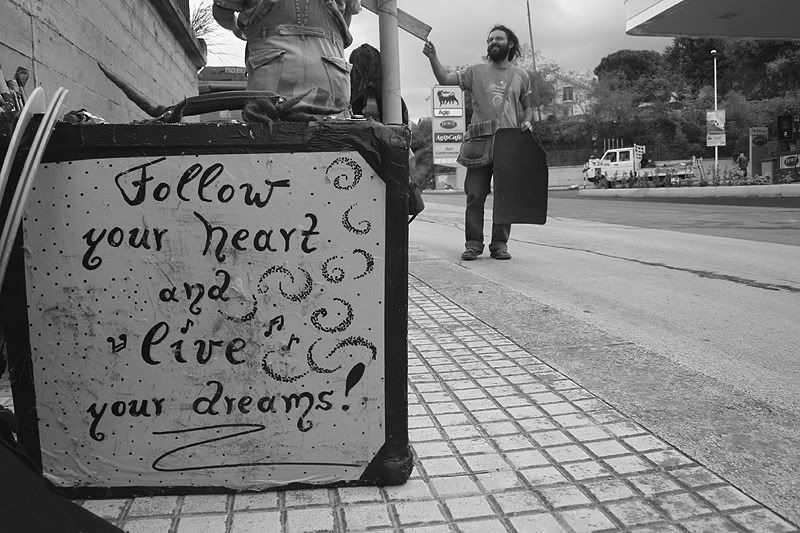 Follow
your heart
and
live
your dreams!
Agip
AgipCafè